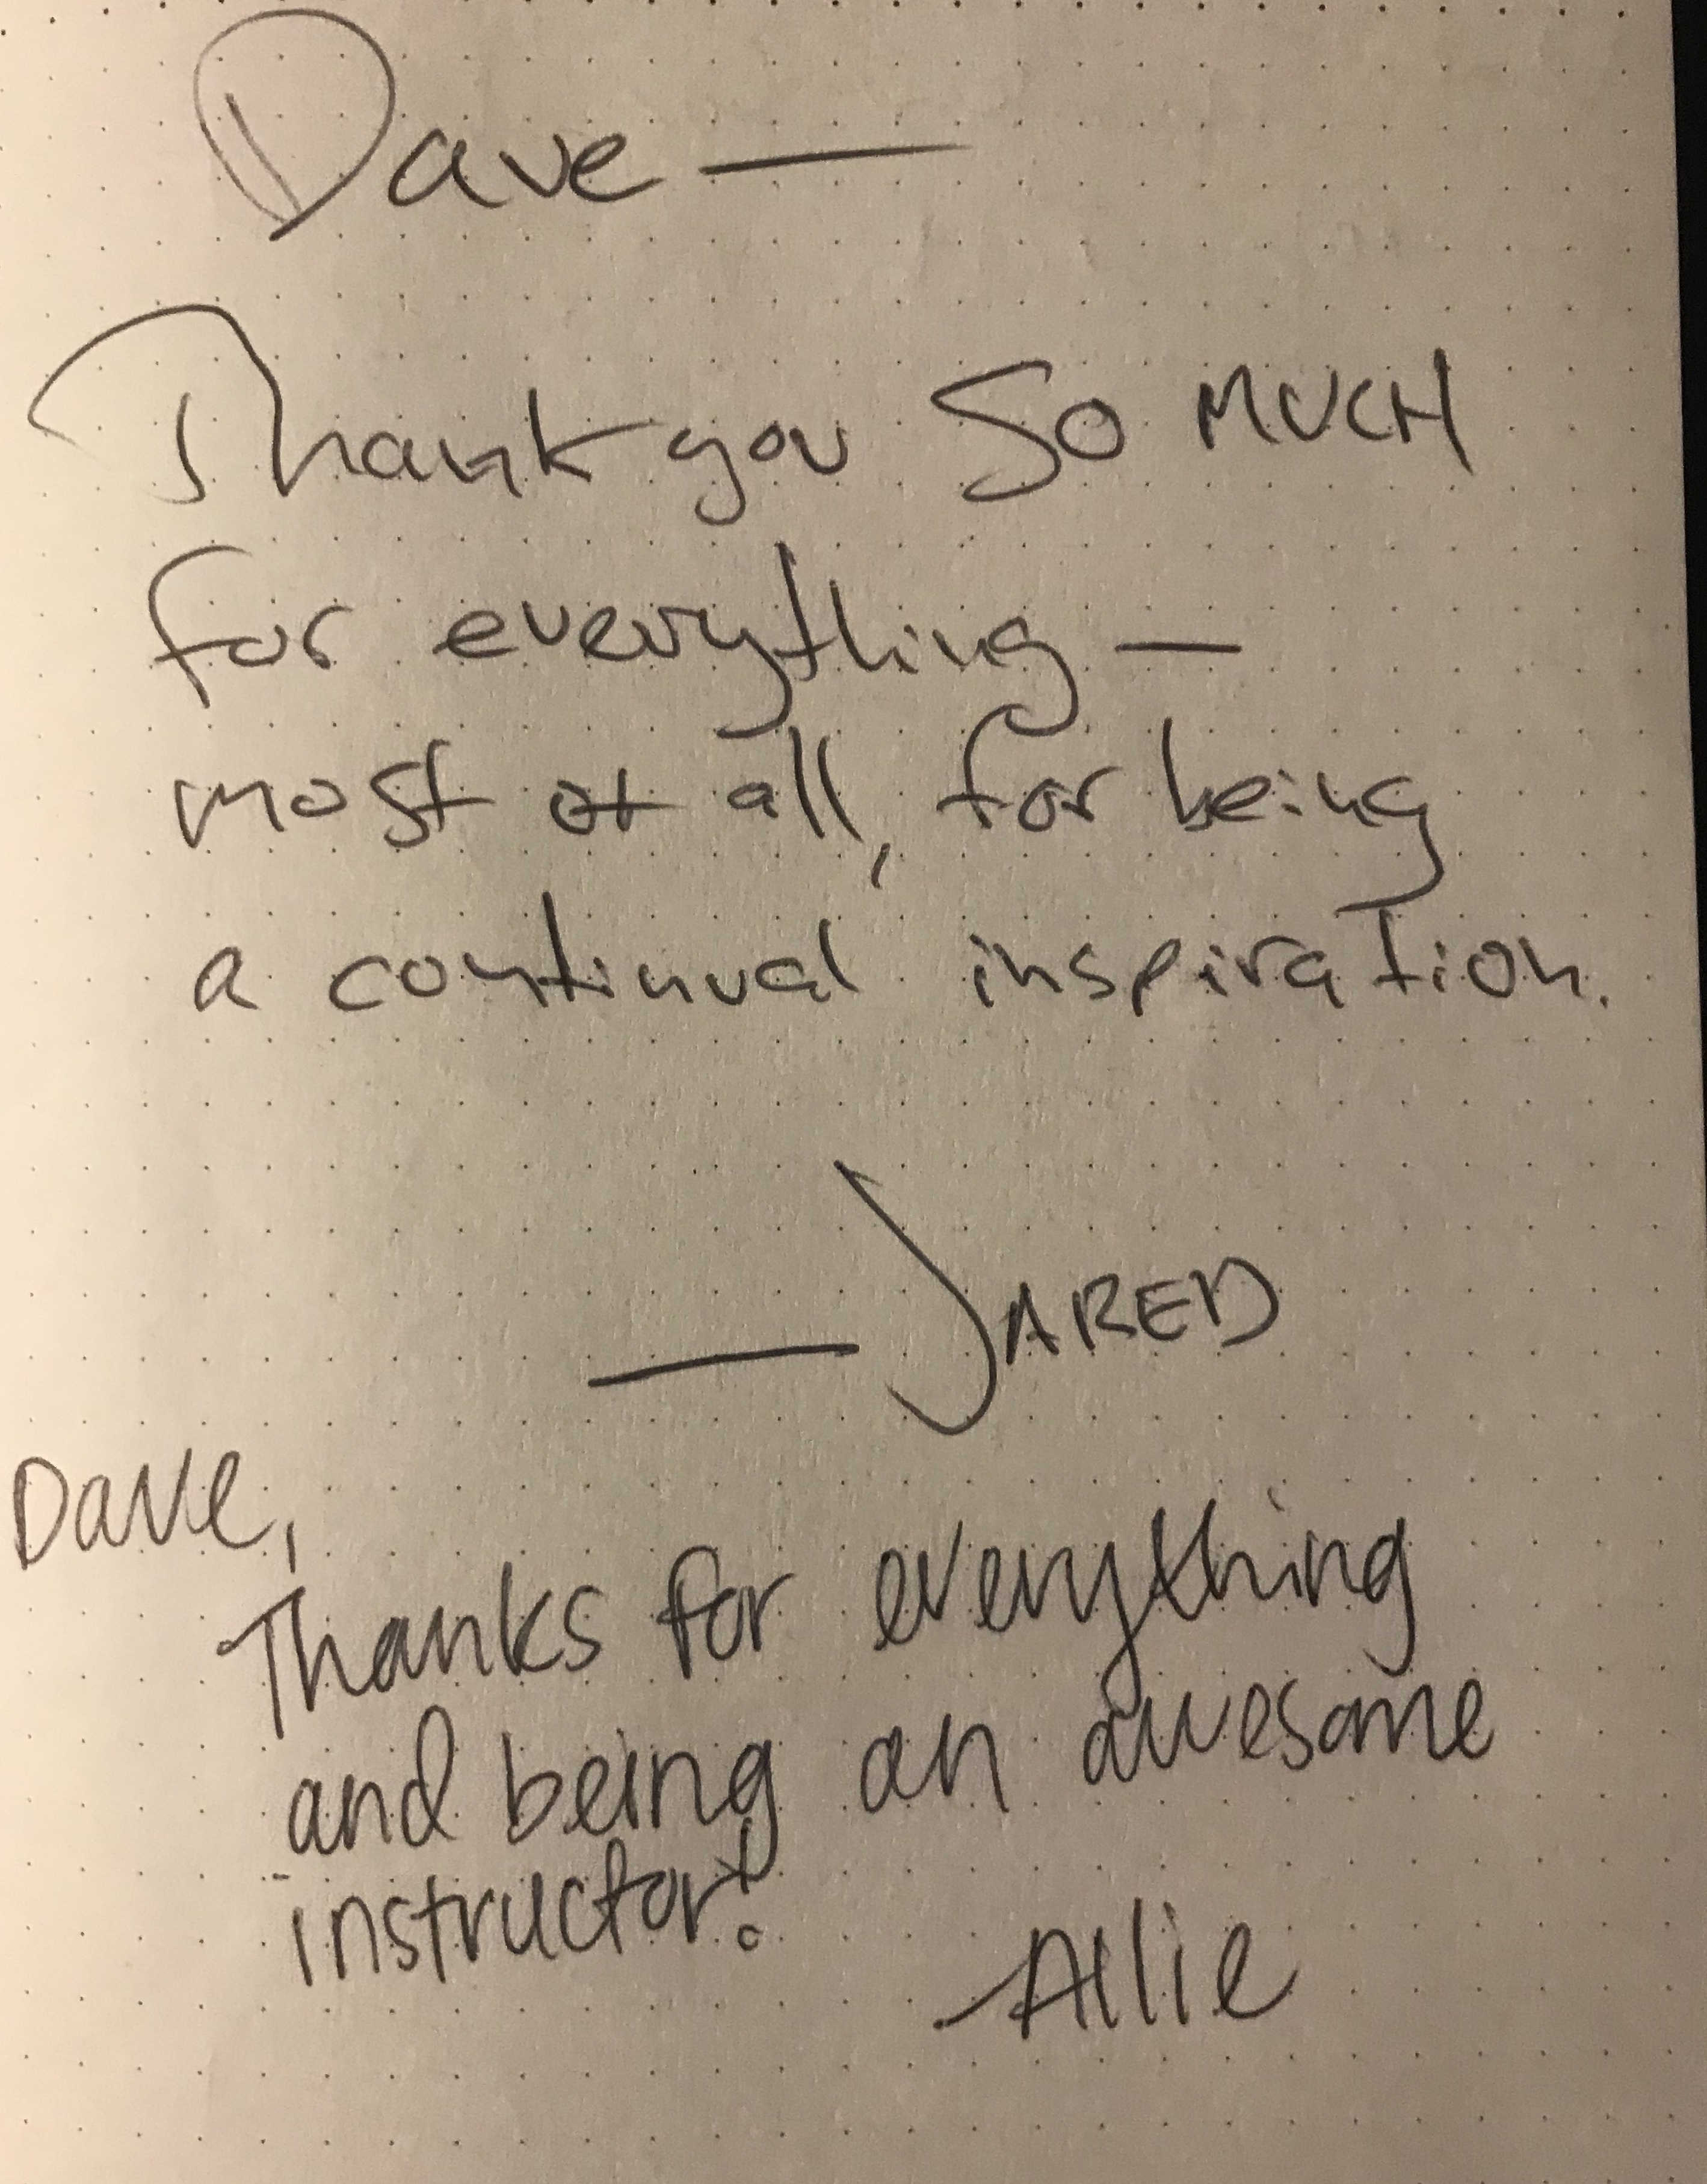 Dave —
Thank you SO MUCH
for everything —
most of all, for being
a continual inspiration.
— JARED
Dave,
Thanks for everything
and being an awesome
instructor!
-Allie